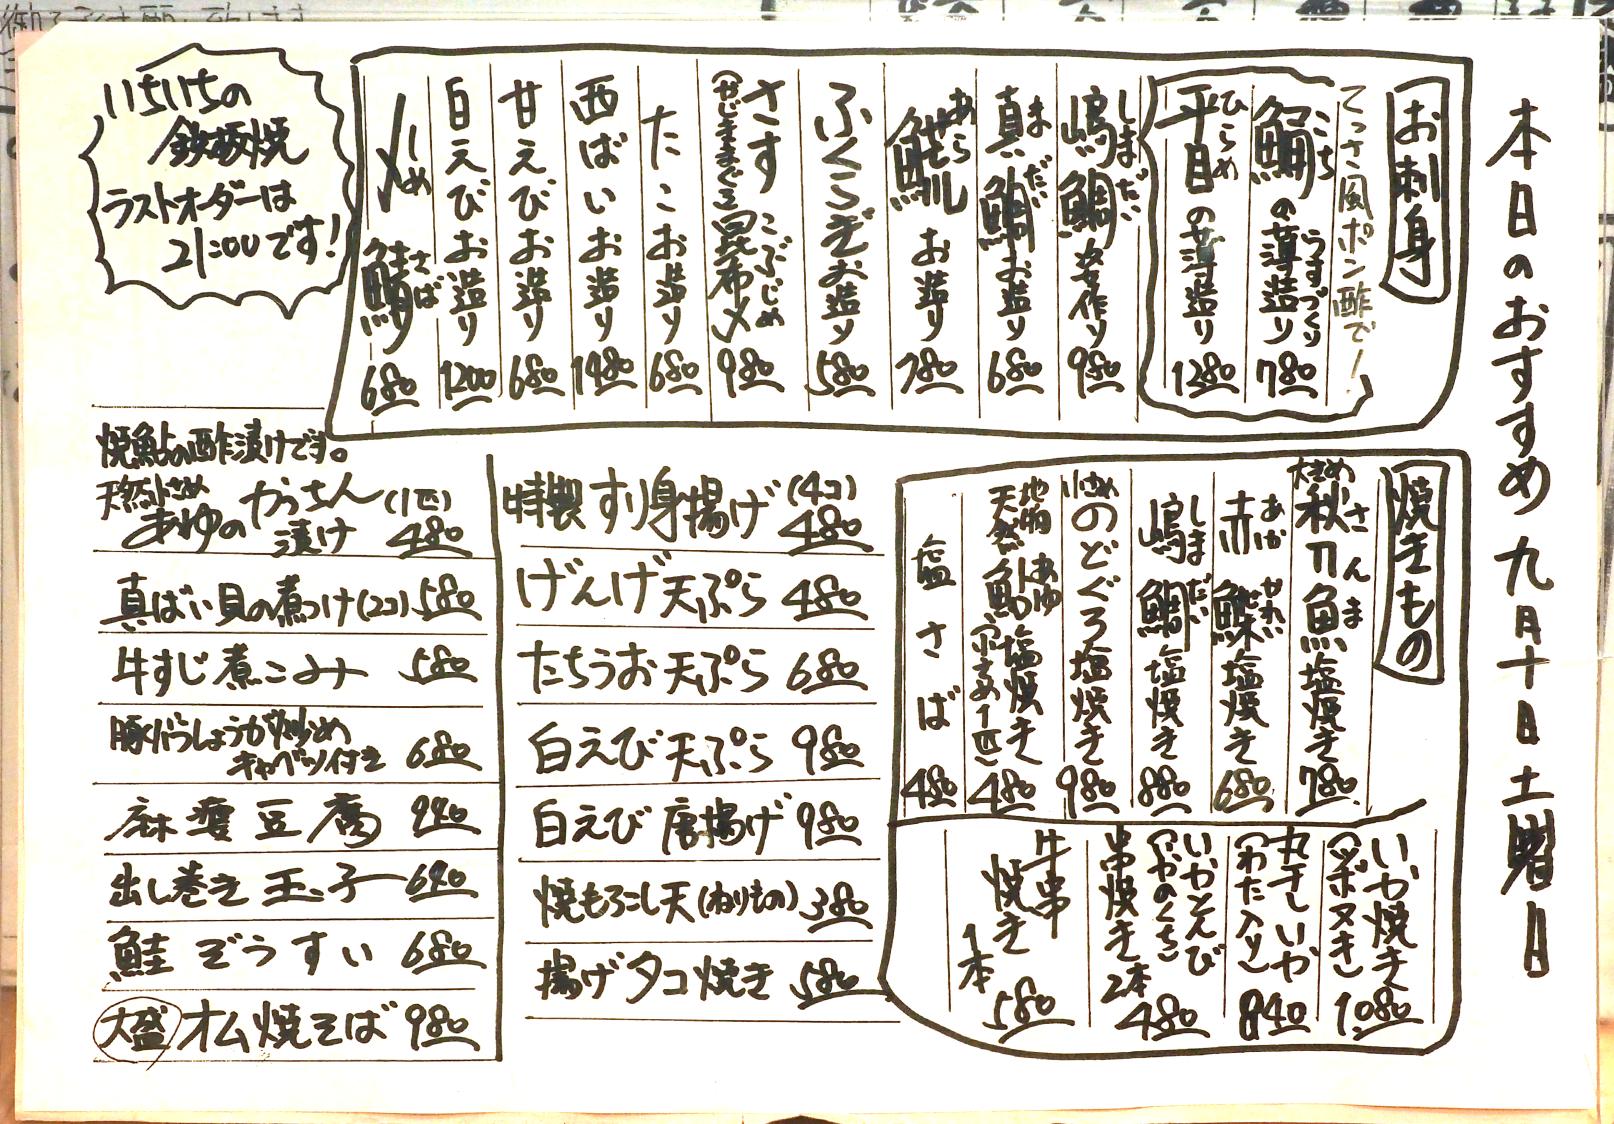 本日のおすすめ 九月十日土曜日
お刺身
てっさ風ポン酢で!
こち
鯒の薄造り 780
うすづくり
ひらめ
平目の薄造り 1280
しまだい
嶋鯛 姿作り 980
まだい
真鯛お造り 680
あら
お造り 780
ふくらぎお造り 580
さす 昆布〆 980
こぶじめ
(かじきまぐろ)
たこお造り 680
西ばいお造り 1480
甘えびお造り 680
白えびお造り 1200
しめさば
〆鯖 680
いちいちの
鉄板焼
ラストオーダーは
21:00です!
焼きもの
大きめ
さんま
秋刀魚塩焼き 780
あかがれい
赤鰈塩焼き 680
しまだい
嶋鯛塩焼き 880
小さめ
のどぐろ塩焼き 980
地物
天然
あゆ
鮎塩焼き 480
(小さめ1匹)
塩さば 480
いか焼き
(ツボヌキ) 1080
丸干しいか
(わた入り) 840
いかとんび
(いかのくち)
串焼き 2本 480
牛串
焼き
1本 580
特製 すり身揚げ (4コ) 480
げんげ天ぷら 480
たちうお天ぷら 680
白えび天ぷら 980
白えび唐揚げ 980
焼もろこし天(ねりもの) 380
揚げタコ焼き 580
焼鮎の酢漬けです。
天然小さめ
あゆの かっちん
漬け (1匹) 480
真ばい貝の煮つけ(2コ) 580
牛すじ煮こみ 580
豚バラしょうが炒め
キャベツ付き 680
麻婆豆腐 940
出し巻き玉子 640
鮭ぞうすい 680
大盛 オム焼そば 980